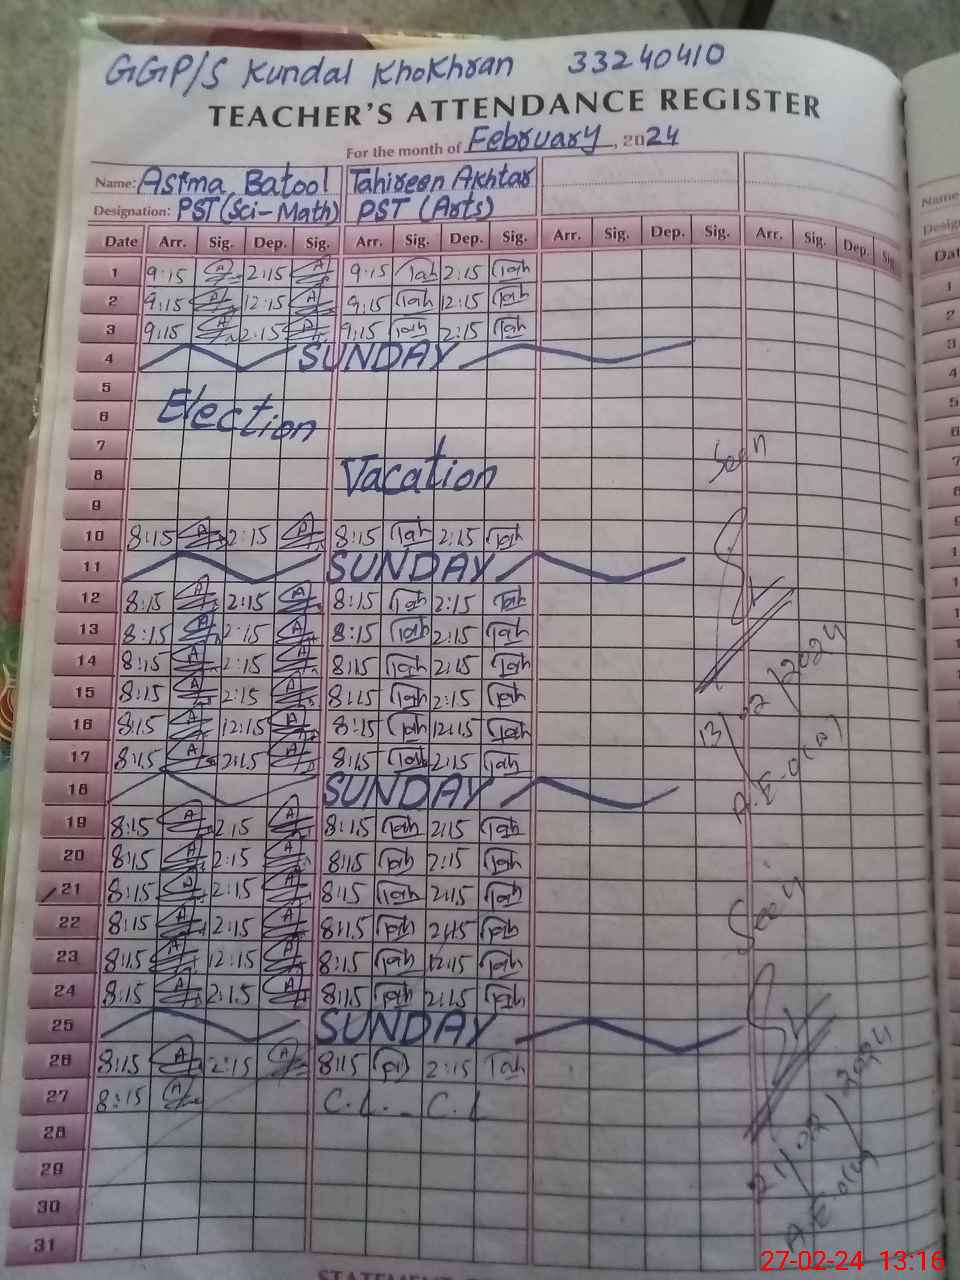 GGP/S Kundal Khokhran 33240410
TEACHER'S ATTENDANCE REGISTER
For the month of February, 2024
Name: Asima Batool Tahireen Akhtar
Designation: PST (Sci-Math) PST (Arts)
Date Arr. Sig. Dep. Sig. Arr. Sig. Dep. Sig. Arr. Sig. Dep. Sig. Arr. Sig. Dep. Sig.
1 9:15 2:15 9:15 Tah 2:15 Tah
2 9:15 12:15 9:15 Tah 12:15 Tah
3 9:15 2:15 9:15 Tah 2:15 Tah
4 SUNDAY
5
6 Election
7
8 Vacation
9
10 8:15 2:15 8:15 Tah 2:15 Tah
11 SUNDAY
12 8:15 2:15 8:15 Tah 2:15 Tah
13 8:15 2:15 8:15 Tah 2:15 Tah
14 8:15 2:15 8:15 Tah 2:15 Tah
15 8:15 2:15 8:15 Tah 2:15 Tah
16 8:15 12:15 8:15 Tah 12:15 Tah
17 8:15 2:15 8:15 Tah 2:15 Tah
18 SUNDAY
19 8:15 2:15 8:15 Tah 2:15 Tah
20 8:15 2:15 8:15 Tah 2:15 Tah
21 8:15 2:15 8:15 Tah 2:15 Tah
22 8:15 2:15 8:15 Tah 2:15 Tah
23 8:15 12:15 8:15 Tah 12:15 Tah
24 8:15 2:15 8:15 Tah 2:15 Tah
25 SUNDAY
26 8:15 2:15 8:15 Tah 2:15 Tah
27 8:15 C.L. C.L
28
29
30
31
Seen
13/02/2024
Seen
21/02/2024
27-02-24 13:16